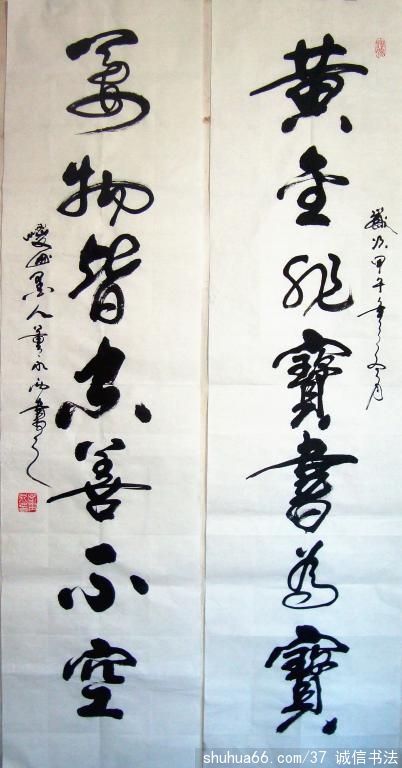 黄金非寶書為寶
歲次甲午年冬月
萬物皆空善不空
墨人董永書
shuhua66.com/37 诚信书法